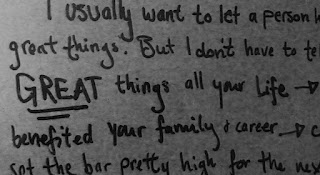 I usually want to let a person k
great things. But I don't have to te
GREAT things all your Life →
benefited your family & career → c
set the bar pretty high for the nex